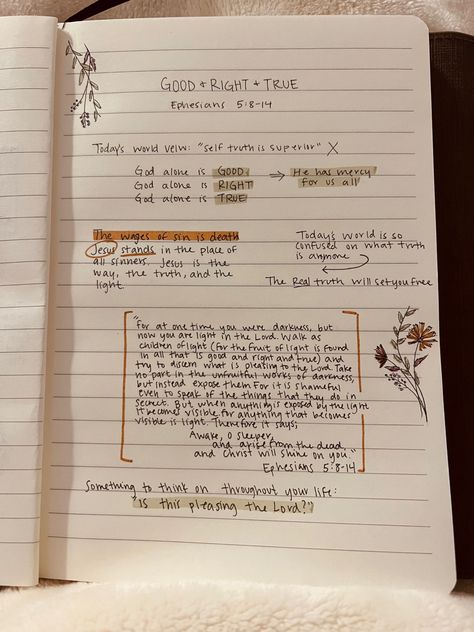 GOOD + RIGHT + TRUE
Ephesians 5:8-14
Today's world veiw: "self truth is superior" X
God alone is GOOD → He has mercy
God alone is RIGHT for us all
God alone is TRUE
The wages of sin is death
Jesus stands in the place of
all sinners. Jesus is the
way, the truth, and the
light.
Today's world is so
confused on what truth
is anymore
The Real truth will set you free
"For at one time you were darkness, but
now you are light in the Lord. Walk as
children of light (for the fruit of light is found
in all that is good and right and true) and
try to discern what is pleasing to the Lord. Take
no part in the unfruitful works of darkness,
but instead expose them. For it is shameful
even to speak of the things that they do in
secret. But when anything is exposed by the light
it becomes visible for anything that becomes
visible is light. Therefore it says;
Awake, O sleeper,
and arise from the dead
and Christ will shine on you."
Ephesians 5:8-14
Something to think on throughout your life:
"Is this pleasing the Lord?"